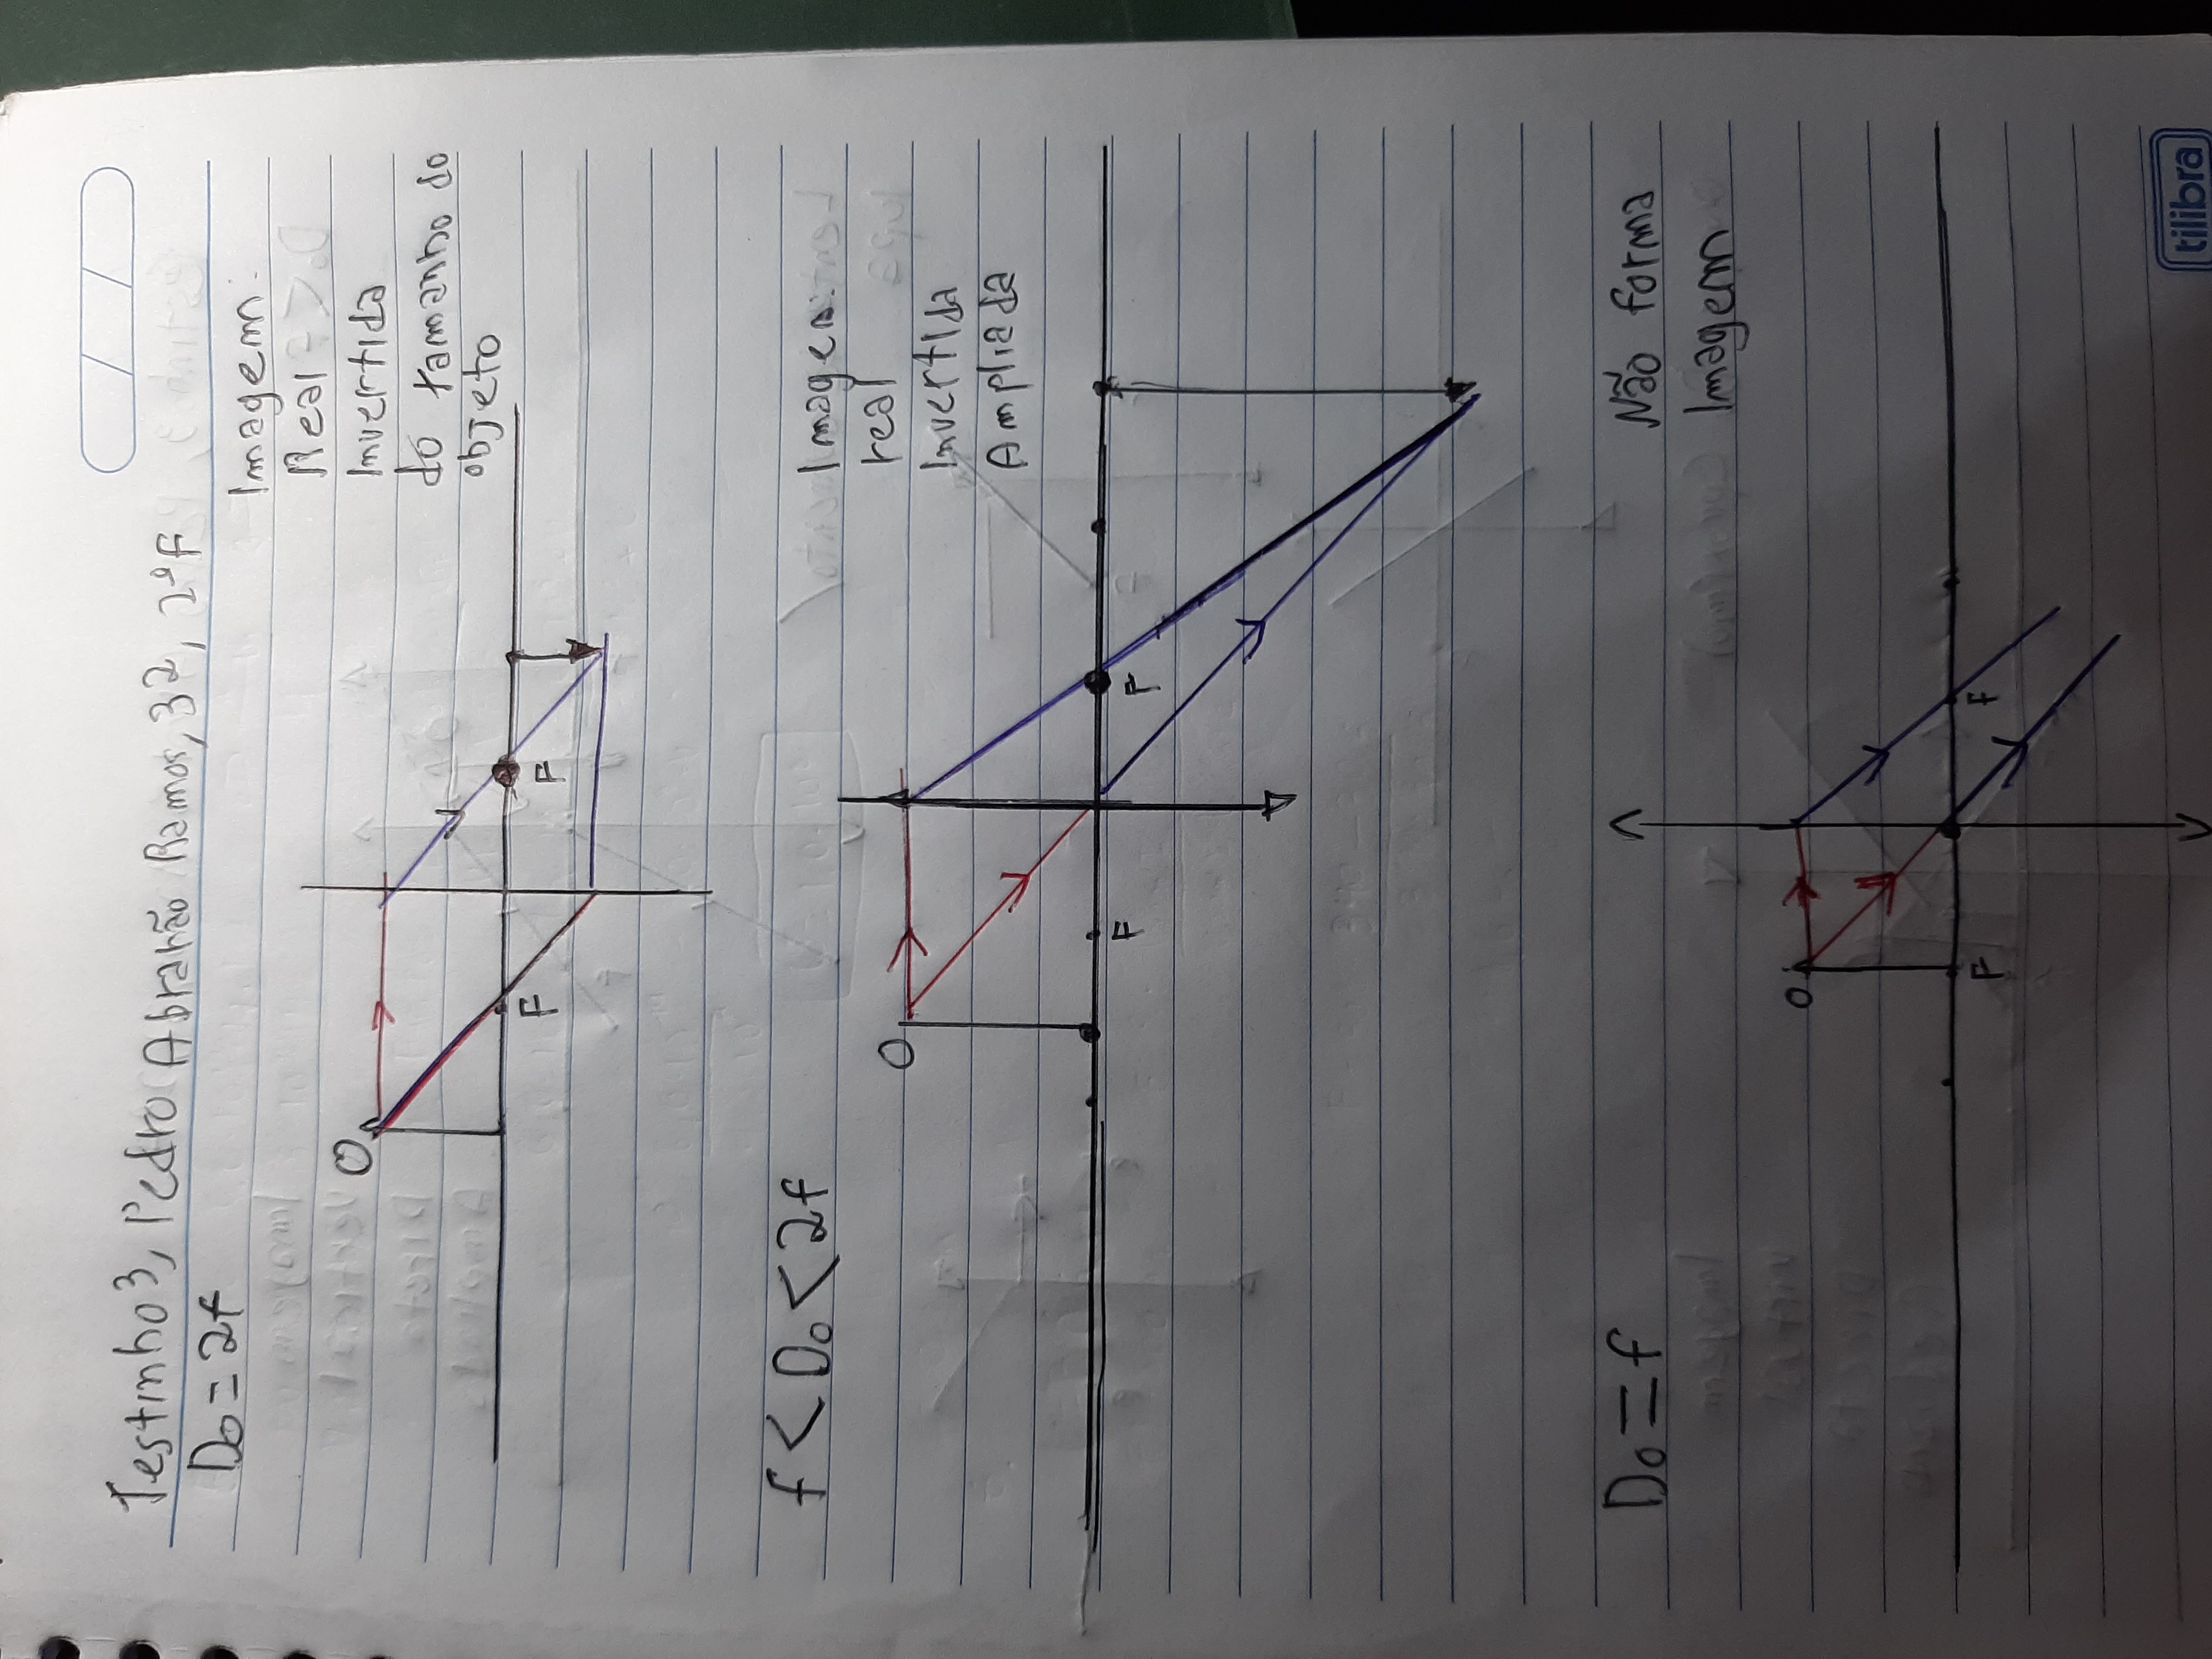 Testinho 3, Pedro Abrarão Ramos, 3ª, 2ºF
Do = 2f
Imagem:
Real
Invertida
do tamanho do
objeto
O
F
F
f < Do < 2f
Imagem:
real
Invertida
Ampliada
O
F
F
Do = f
Não forma
Imagem
O
F
F
tilibra